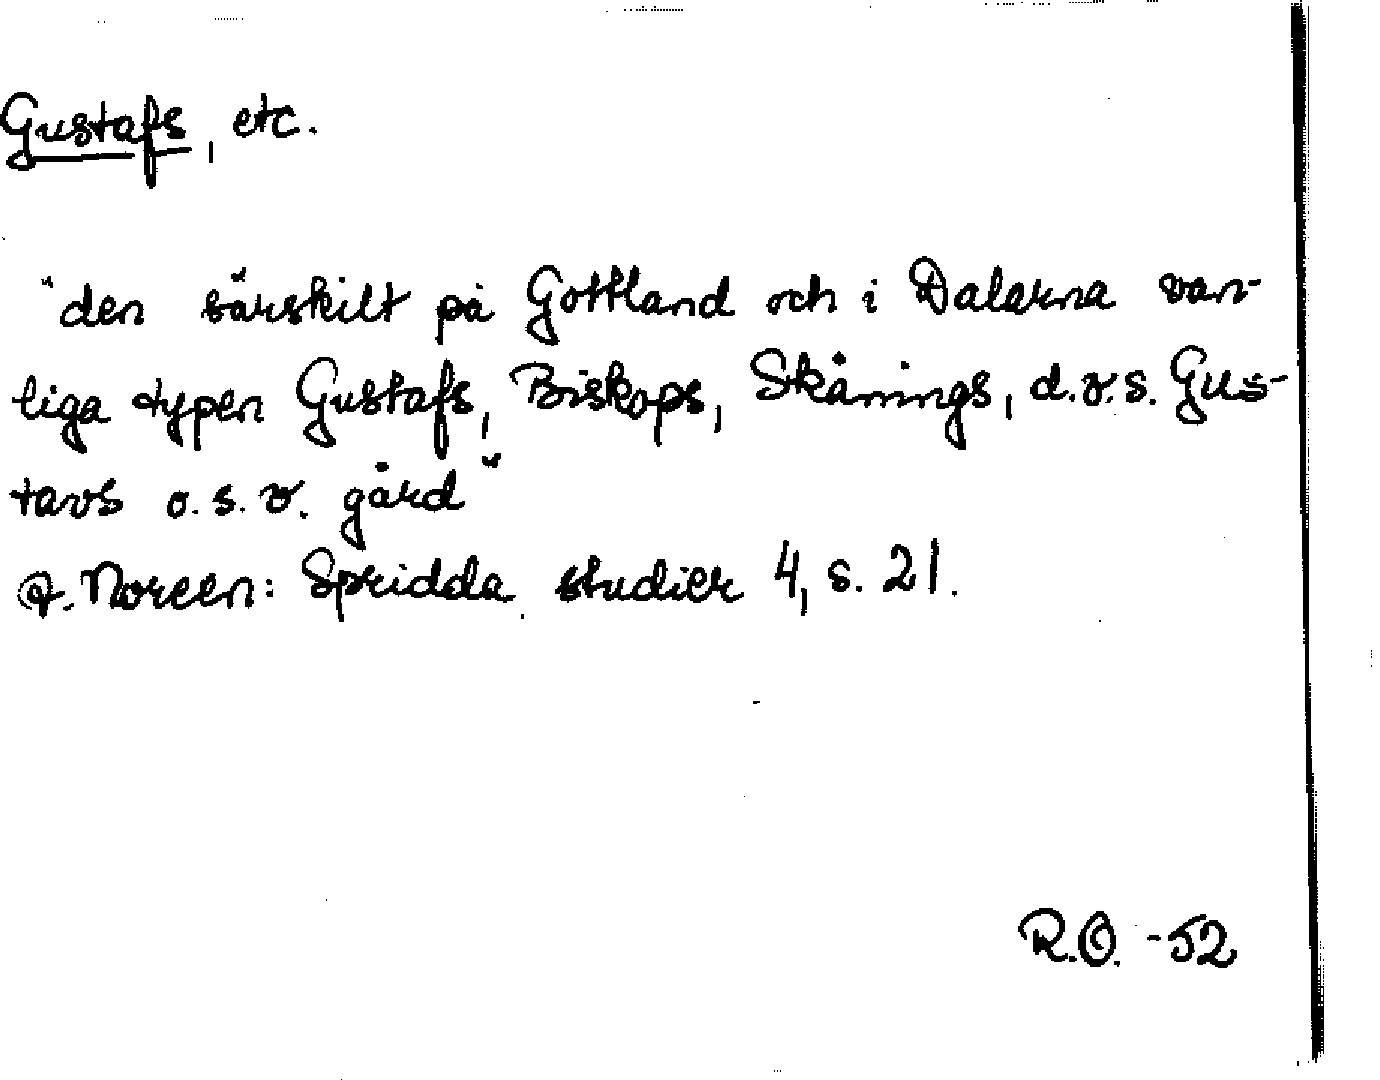 Gustafs, etc.
"den särskilt på Gottland och i Dalarna van-
liga typen Gustafs, Biskops, Skånings, d.v.s. Gus-
tavs o.s.v. gård"
A. Noreen: Spridda studier 4, s. 21.
R.O. -52